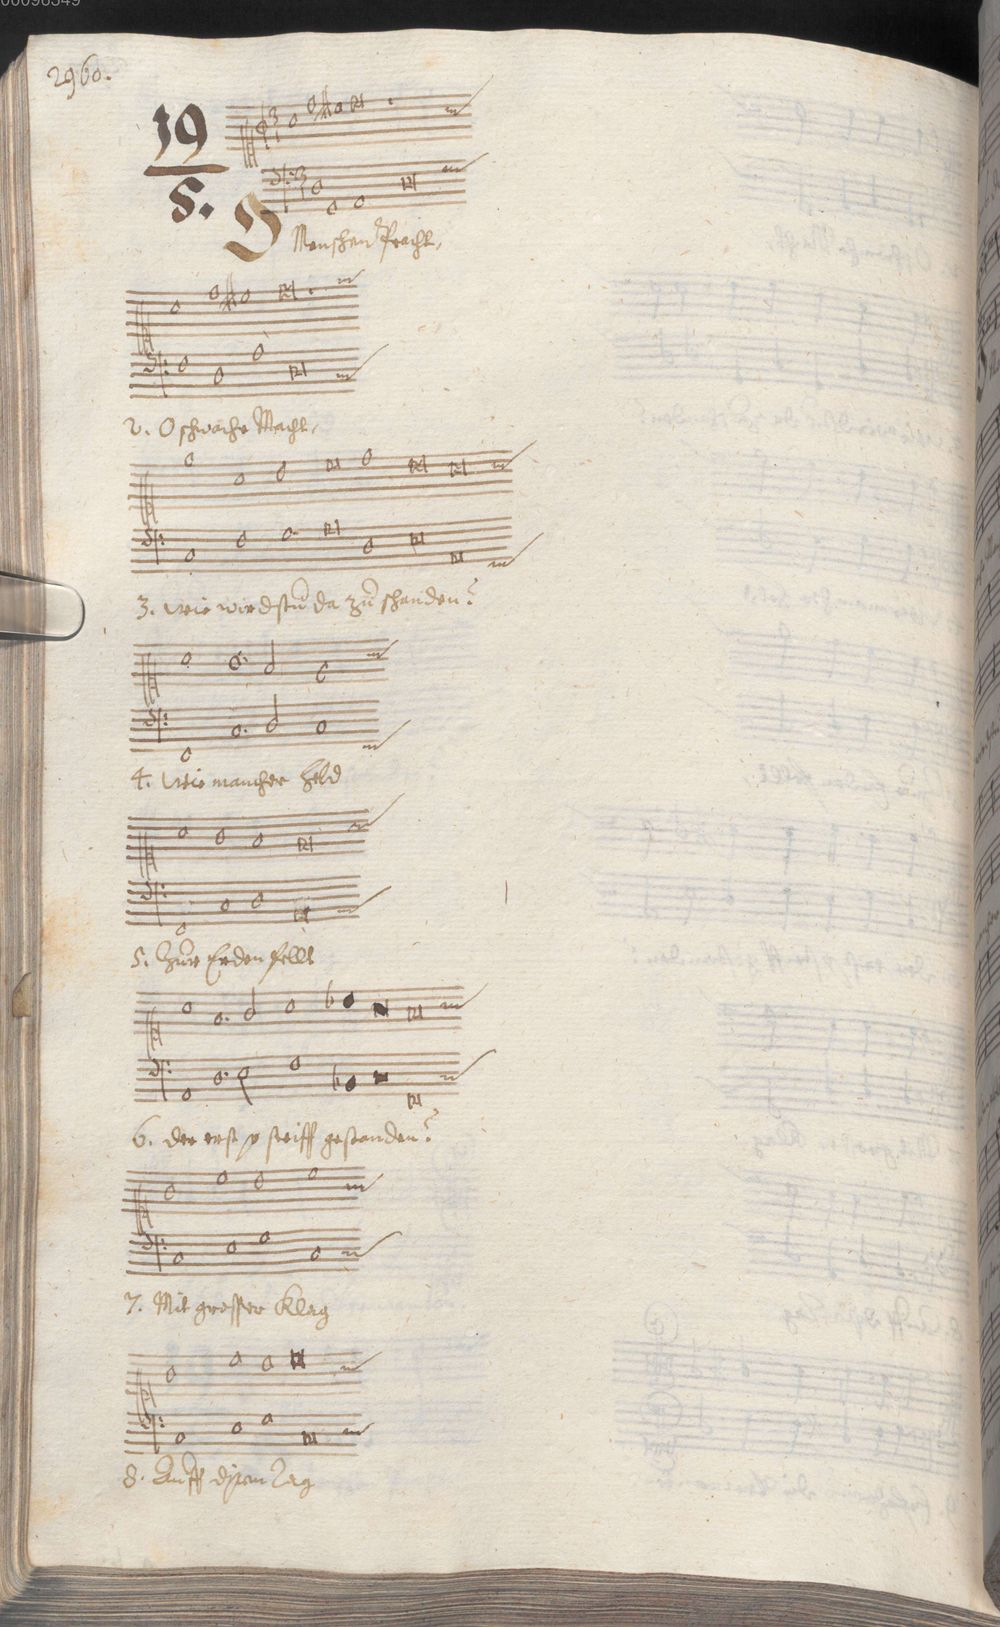 00098549
2960.
19
5.
O Menschen Pracht,
2. O schwache Macht,
3. wie wirdstu da zu schanden?
4. Wie mancher Held
5. Zur Erden fellt
6. der erst steiff gestanden?
7. Mit grosser Klag
8. Auff disen Tag